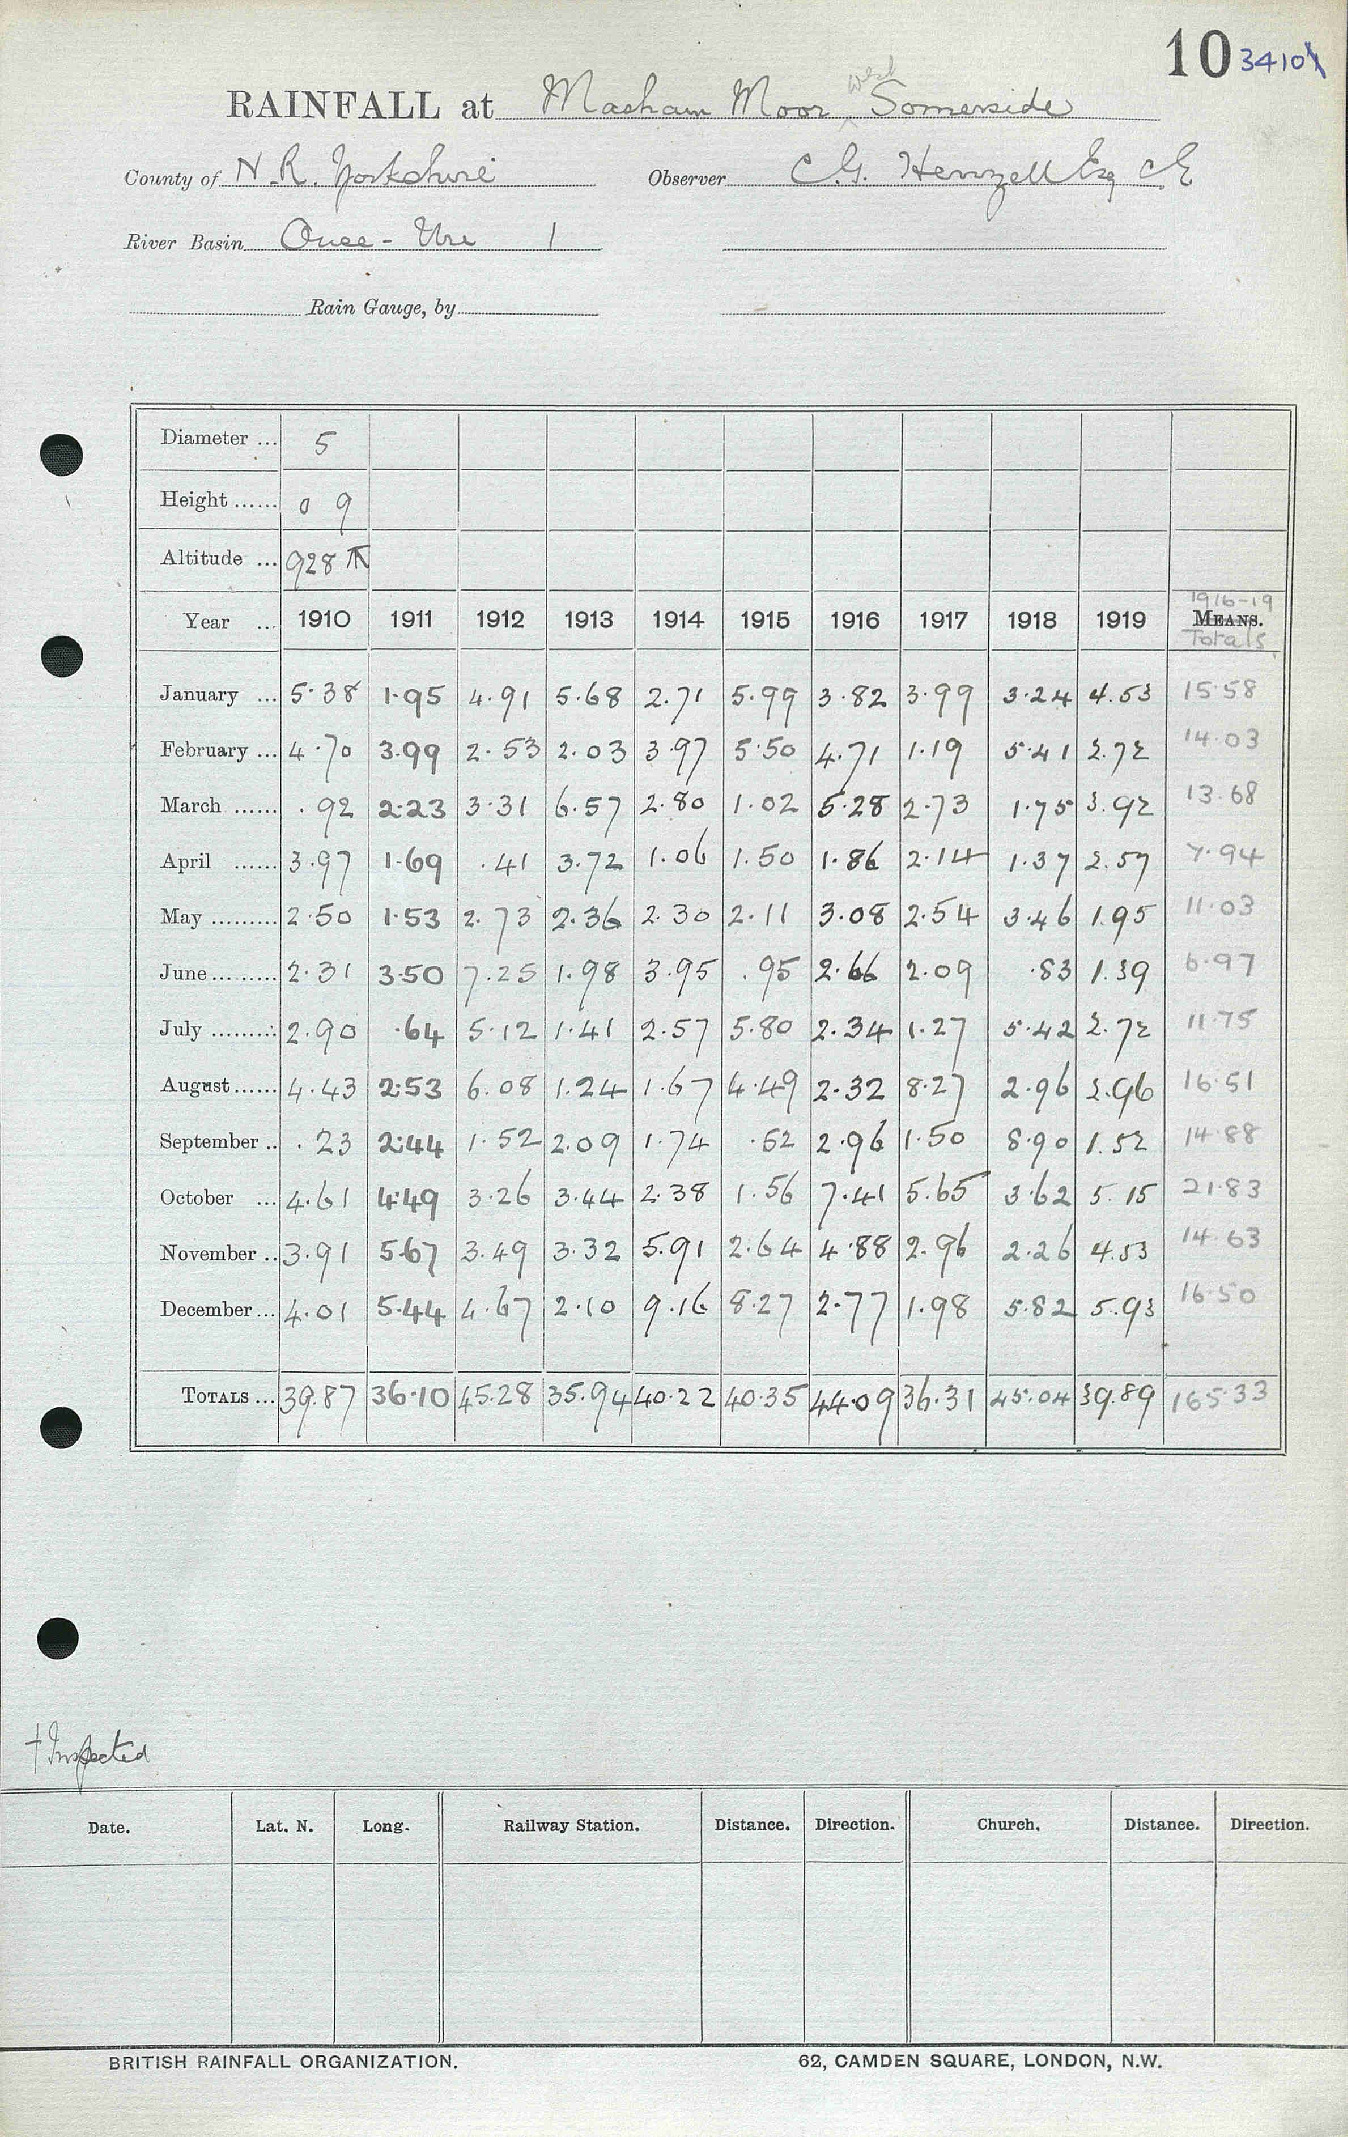 10 3410
RAINFALL at Masham Moor west Somerside
County of N.R. Yorkshire Observer C.G. Henzell Esq CE
River Basin Ouse - Ure 1
Rain Gauge, by
Diameter ... 5
Height ...... 0 9
Altitude ... 928 π
1916-19
Year ... 1910 1911 1912 1913 1914 1915 1916 1917 1918 1919 MEANS.
Totals
January ... 5.38 1.95 4.91 5.68 2.71 5.99 3.82 3.99 3.24 4.53 15.58
February ... 4.70 3.99 2.53 2.03 3.97 5.50 4.71 1.19 5.41 2.72 14.03
March ...... .92 2.23 3.31 6.57 2.80 1.02 5.28 2.73 1.75 3.92 13.68
April ...... 3.97 1.69 .41 3.72 1.06 1.50 1.86 2.14 1.37 2.57 7.94
May ......... 2.50 1.53 2.73 2.36 2.30 2.11 3.08 2.54 3.46 1.95 11.03
June ......... 2.31 3.50 7.25 1.98 3.95 .95 2.66 2.09 .83 1.39 6.97
July ......... 2.90 .64 5.12 1.41 2.57 5.80 2.34 1.27 5.42 2.72 11.75
August ...... 4.43 2.53 6.08 1.24 1.67 4.49 2.32 8.27 2.96 2.96 16.51
September .. .23 2.44 1.52 2.09 1.74 .52 2.96 1.50 8.90 1.52 14.88
October ... 4.61 4.49 3.26 3.44 2.38 1.56 7.41 5.65 3.62 5.15 21.83
November .. 3.91 5.67 3.49 3.32 5.91 2.64 4.88 2.96 2.26 4.53 14.63
December ... 4.01 5.44 4.67 2.10 9.16 8.27 2.77 1.98 5.82 5.93 16.50
TOTALS ... 39.87 36.10 45.28 35.94 40.22 40.35 44.09 36.31 45.04 39.89 165.33
† Inspected
Date. Lat. N. Long. Railway Station. Distance. Direction. Church. Distance. Direction.
BRITISH RAINFALL ORGANIZATION. 62, CAMDEN SQUARE, LONDON, N.W.